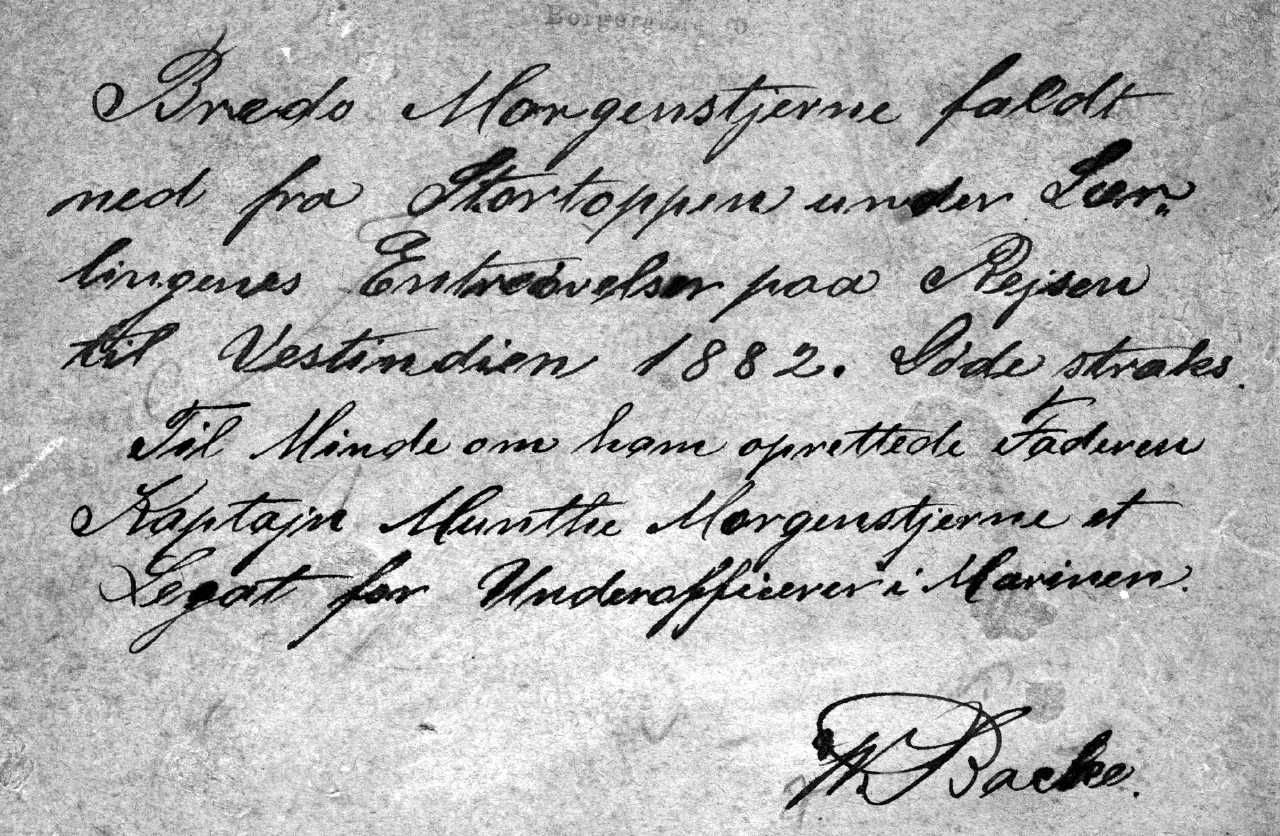 Borgergade
Bredo Morgenstjerne faldt
ned fra Stortoppen under Lær-
lingenes Entreøvelser paa Rejsen
til Vestindien 1882. Døde straks.
Til Minde om ham oprettede Faderen
Kaptajn Munthe Morgenstjerne et
Legat for Underofficerer i Marinen.
Backe.